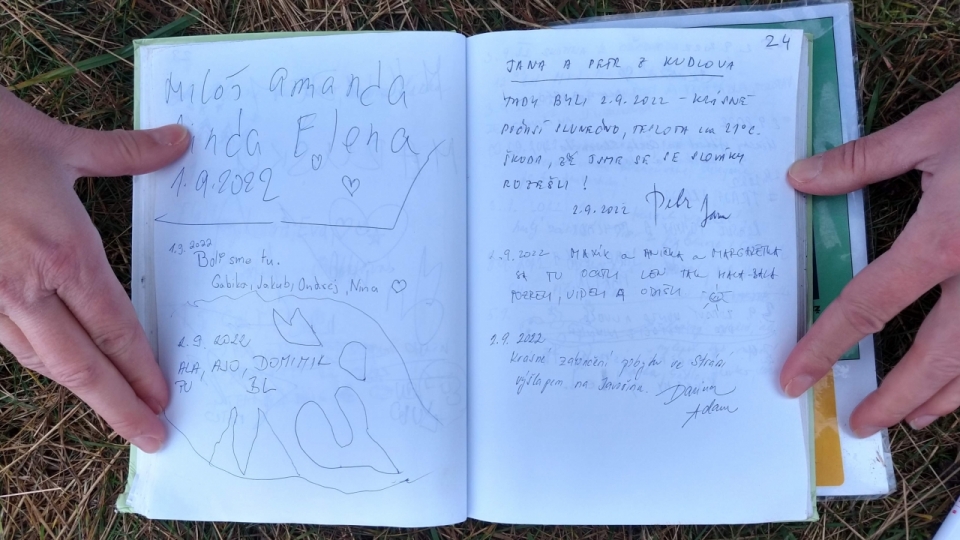 Miloš Amanda
Linda Elena
1.9.2022
1.9.2022
Boli sme tu.
Gabika, Jakub, Ondrej, Nina
2.9.2022
ALA, AJO, DOMINIK
TU BL
24
JANA A PETR Z KUDLOVA
TADY BYLI 2.9.2022 - KRÁSNÉ
POČASÍ SLUNEČNO, TEPLOTA 21°C.
ŠKODA, ŽE JSME SE SE SLOVÁKY
ROZEŠLI!
2.9.2022 Petr Jana
2.9.2022 MAXÍK a ANIČKA a MARGARÉTKA
SA TU OCITLI LEN TAK HALA-BALA
POZRELI, VIDELI A ODIŠLI
2.9.2022
Krásné zakončení pobytu ve Strání
výšlapem na Javořina. Darina
Adam